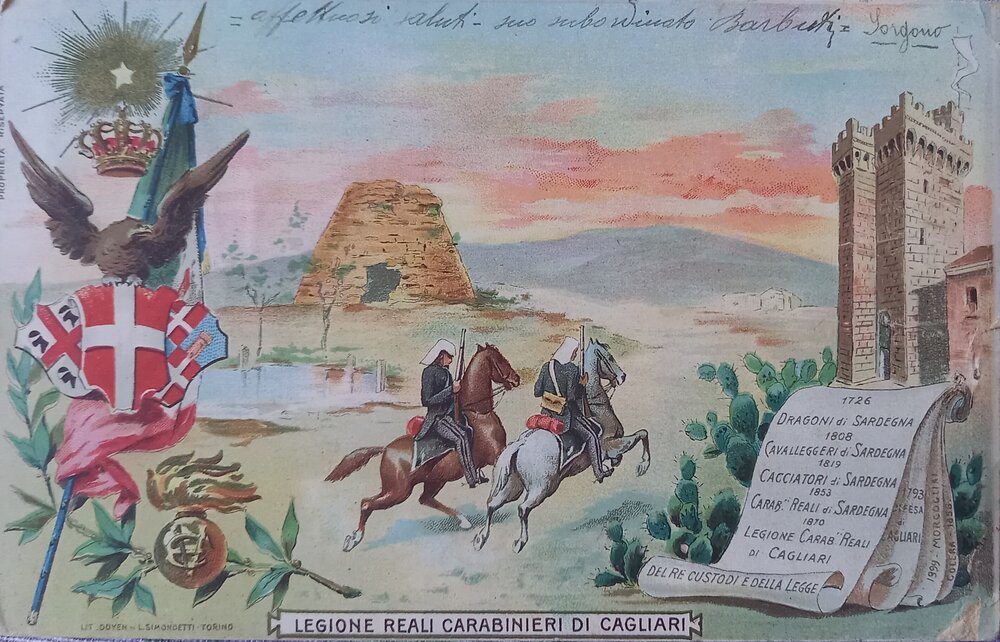 = affettuosi saluti - suo subordinato Barbuti = Sorgono
PROPRIETÀ RISERVATA
1726
DRAGONI di SARDEGNA
1808
CAVALLEGGERI di SARDEGNA
1819
CACCIATORI di SARDEGNA
1853
CARAB.ri REALI di SARDEGNA
1870
LEGIONE CARAB.ri REALI
DI CAGLIARI
DEL RE CUSTODI E DELLA LEGGE
793
DIFESA
di
CAGLIARI
MORGOGLIAI
COLERA - 1856
LIT. DOYEN di L. SIMONDETTI - TORINO
LEGIONE REALI CARABINIERI DI CAGLIARI